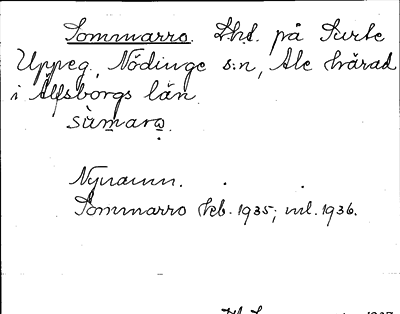 Sommarro. Lhd. på Surte
Uppeg., Nödinge s:n, Ale härad
i Älfsborgs län.
sùmarω.
Nynamn.
Sommarro tkb. 1935; ml. 1936.